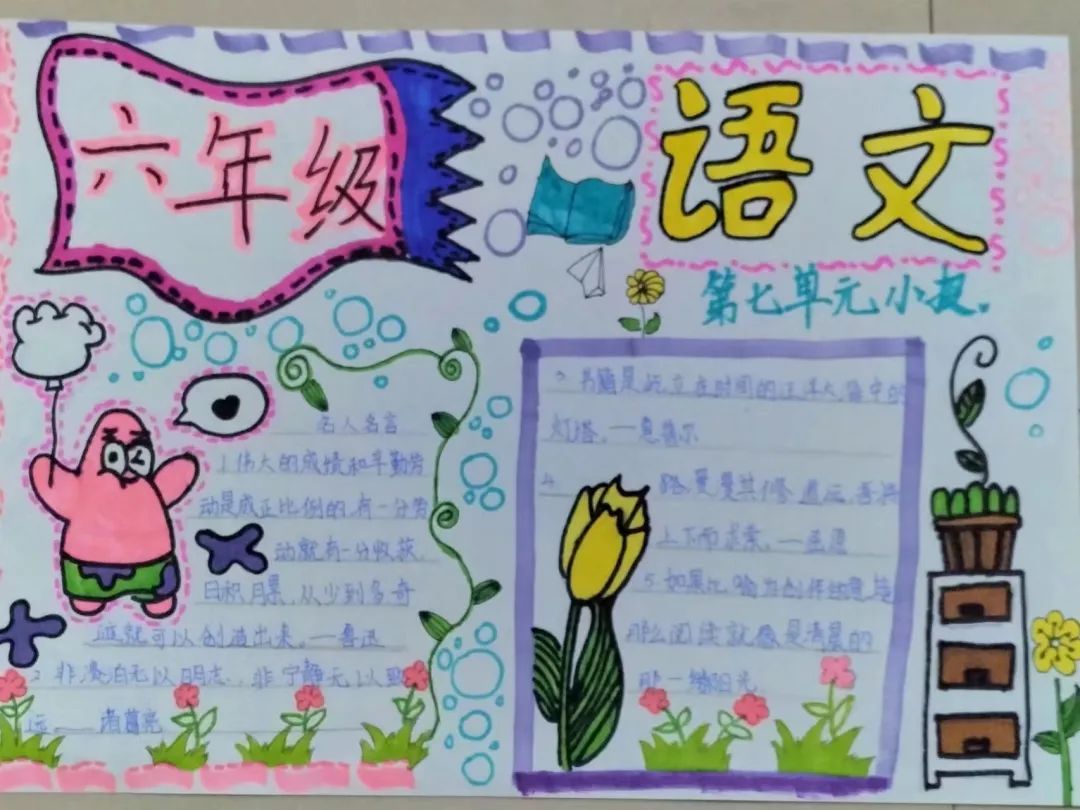 六年级
语文
第七单元小报.
名人名言
1.伟大的成绩和辛勤劳
动是成正比例的,有一分劳
动就有一分收获,
日积月累,从少到多,奇
迹就可以创造出来。—鲁迅
2、非淡泊无以明志,非宁静无以致
远——诸葛亮
3、书籍是屹立在时间的汪洋大海中的
灯塔。—惠普尔
4、路曼曼其修道远,吾将
上下而求索。—屈原
5.如果比喻为创作的意是
那么阅读就像是清晨的
那一缕阳光。